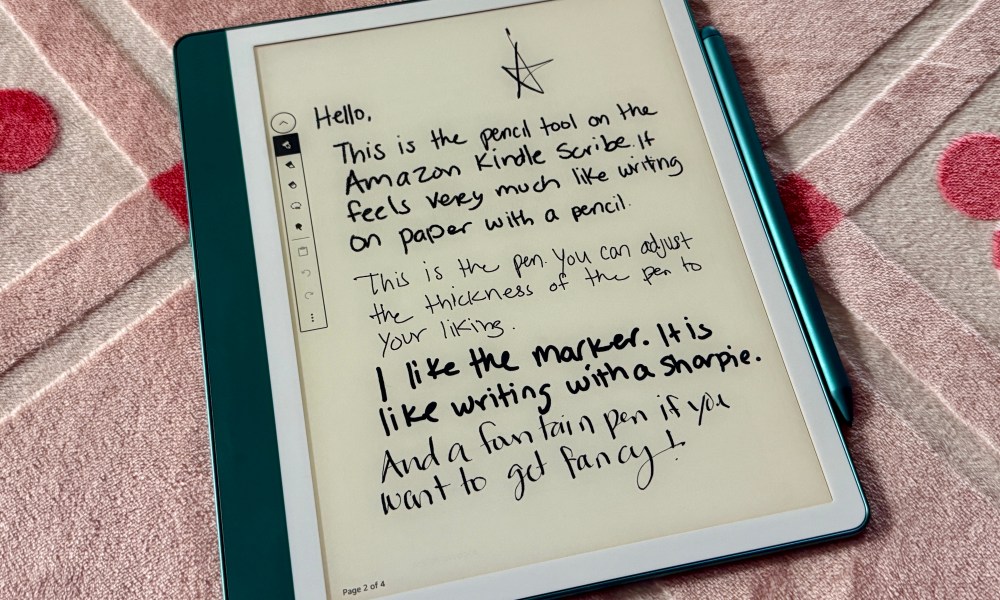 Hello.
This is the pencil tool on the
Amazon Kindle Scribe. It
feels very much like writing
on paper with a pencil.
This is the pen. You can adjust
the thickness of the pen to
your liking.
I like the marker. It is
like writing with a sharpie.
And a fantain pen if you
want to get fancy!
Page 2 of 4